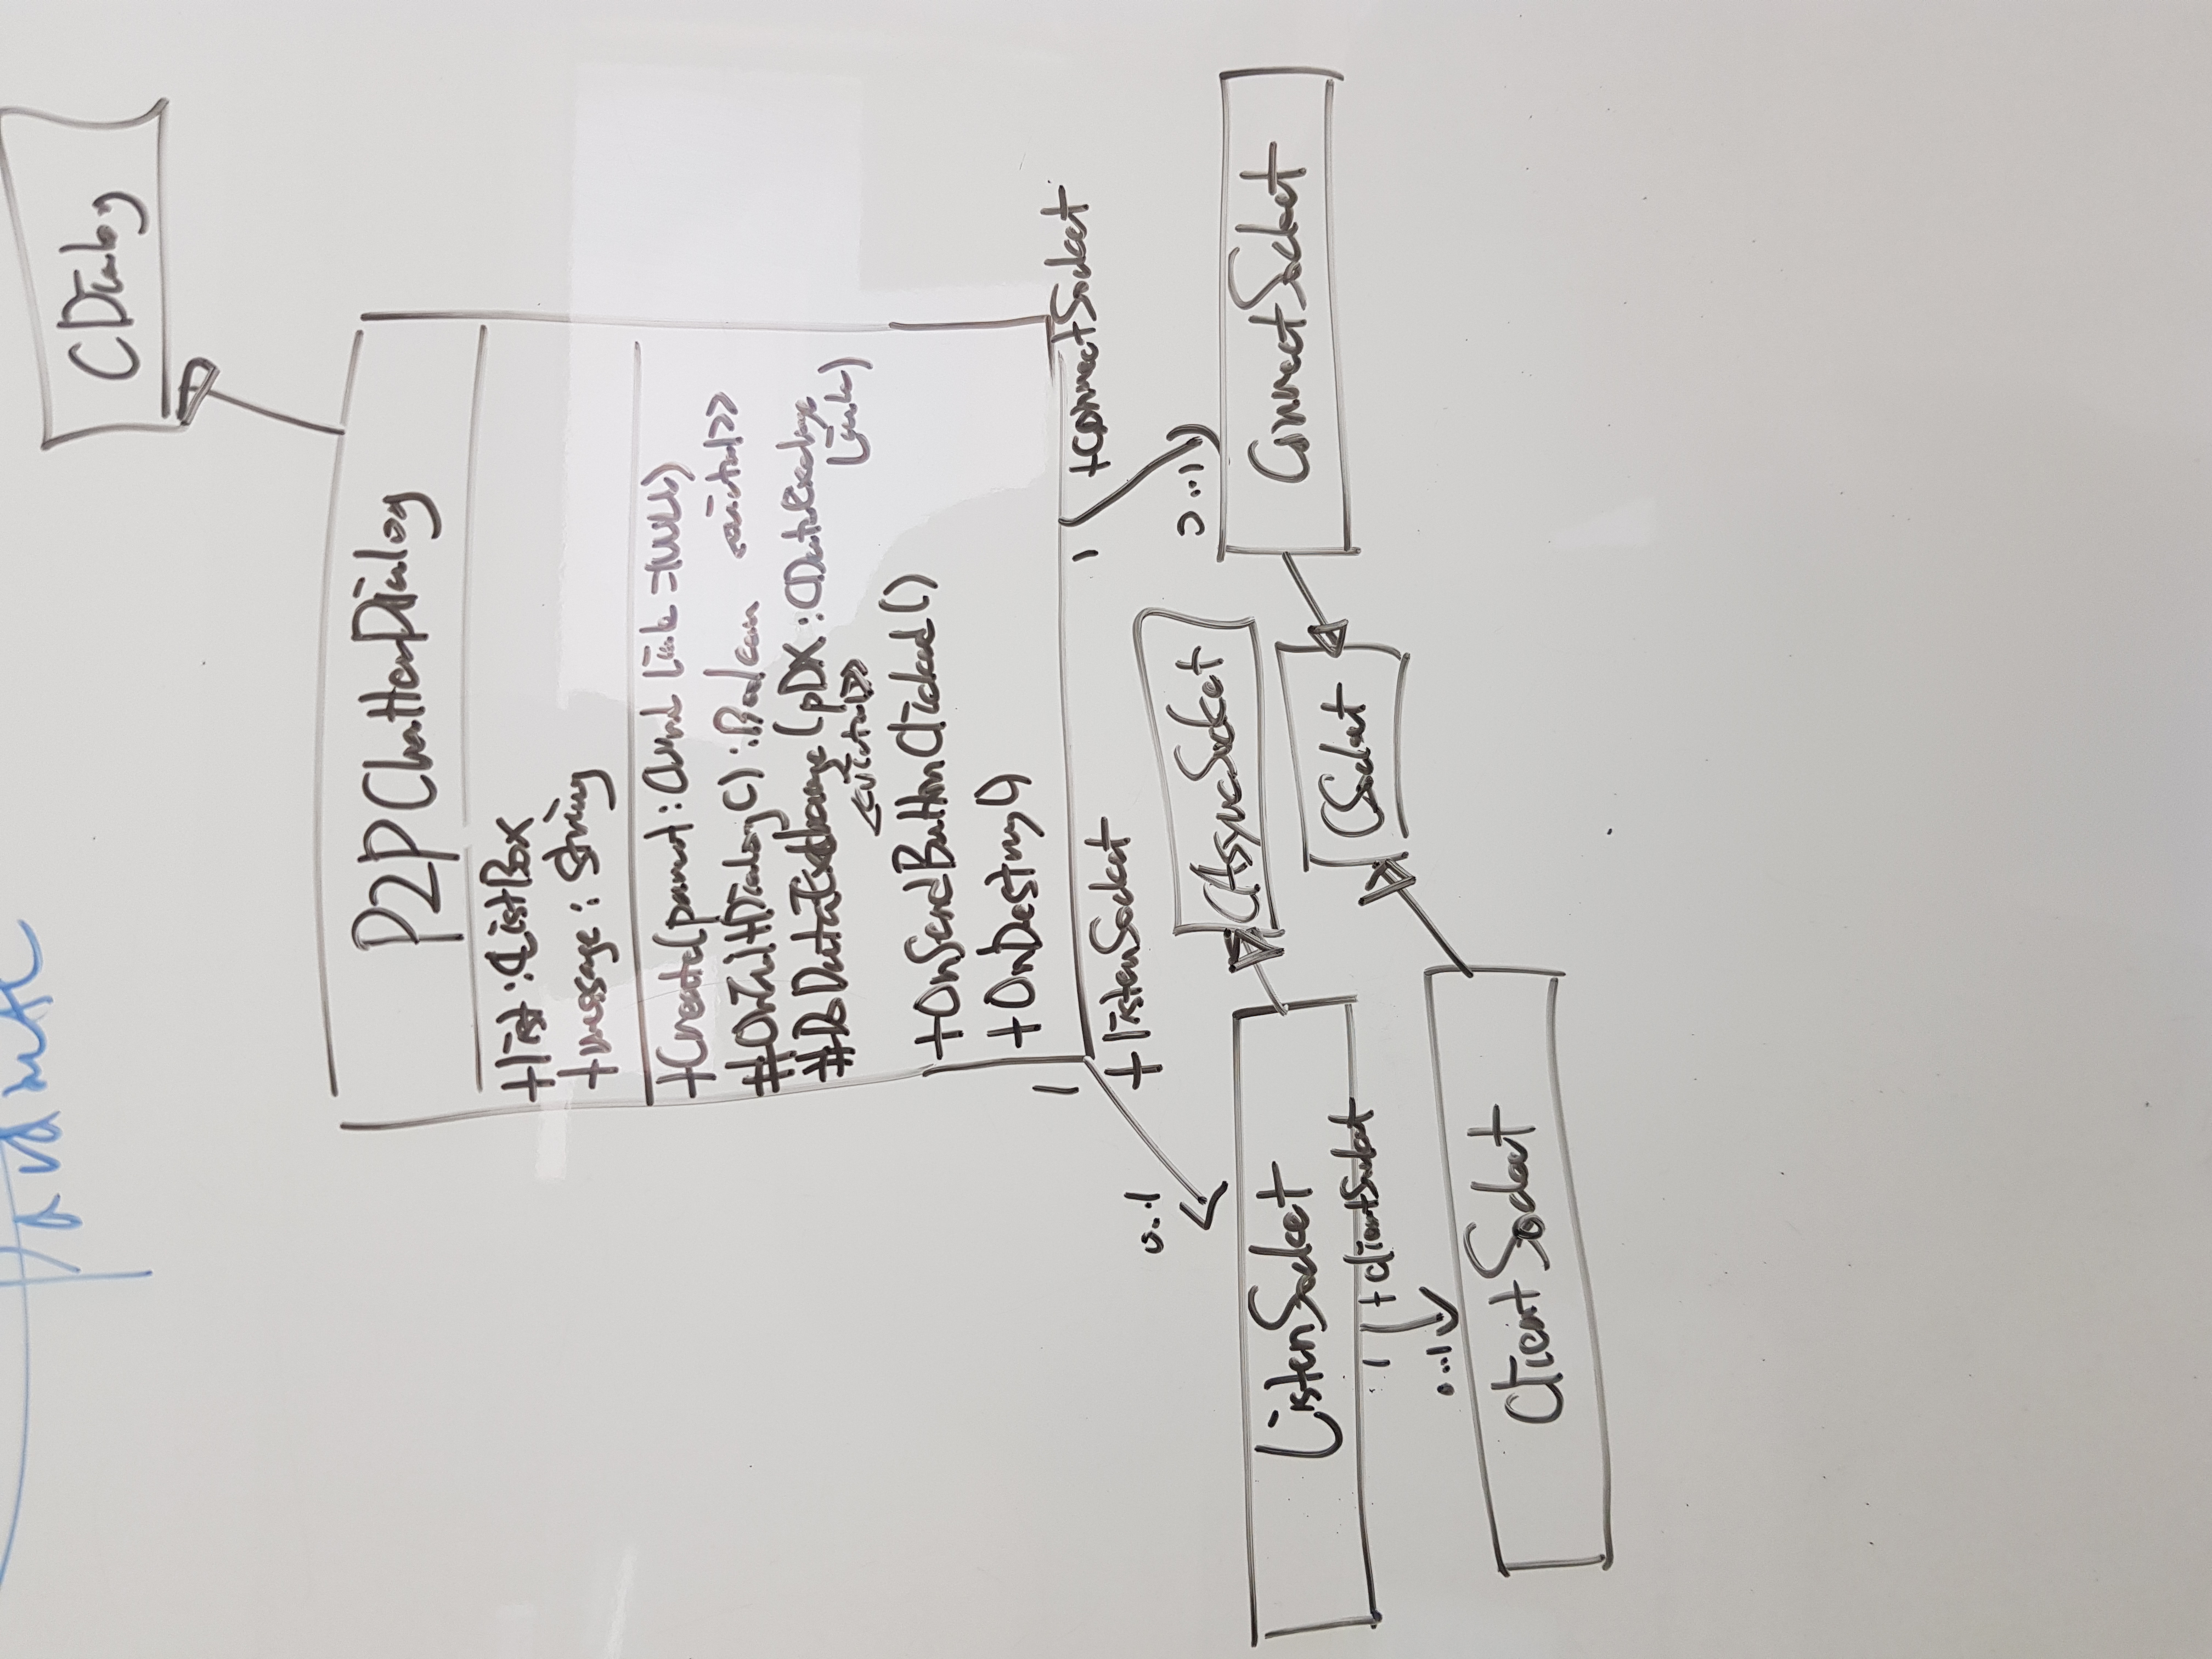 CDialog
P2PChatterDialog
+list : CListBox
+message : String
+Create(parent : CWnd Link = NULL)
#OnInitDialog() : Boolean <<virtual>>
#DoDataExchange(pDX : CDataExchange
Link)
<<virtual>>
+OnSendButtonClicked()
+OnDestroy()
1
+listenSocket
0..1
1
+connectSocket
0..1
CAsyncSocket
ListenSocket
ConnectSocket
CSocket
1
+clientSocket
0..1
ClientSocket